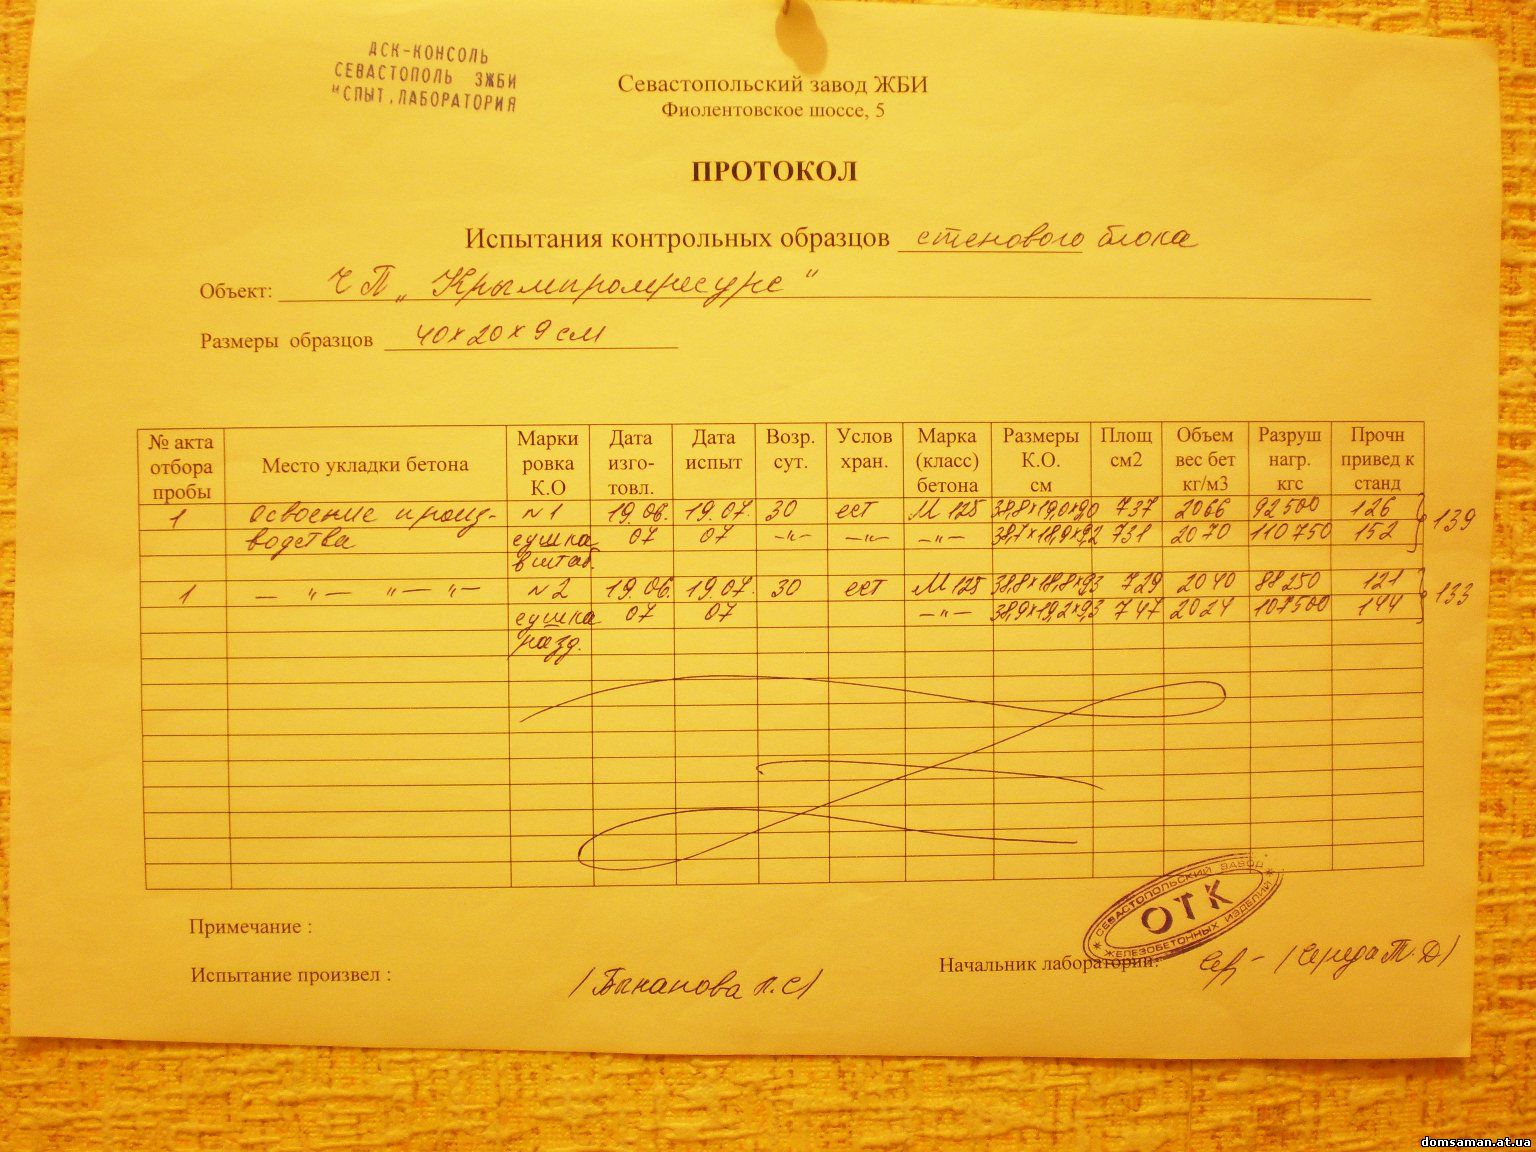 ДСК-КОНСОЛЬ
СЕВАСТОПОЛЬ ЗЖБИ
ИСПЫТ. ЛАБОРАТОРИЯ
Севастопольский завод ЖБИ
Фиолентовское шоссе, 5
ПРОТОКОЛ
Испытания контрольных образцов стенового блока
Объект: ЧП „Крымпромресурс"
Размеры образцов 40х20х9 см
№ акта отбора пробы Место укладки бетона Марки ровка К.О Дата изго- товл. Дата испыт Возр. сут. Услов хран. Марка (класс) бетона Размеры К.О. см Площ см2 Объем вес бет кг/м3 Разруш нагр. кгс Прочн привед к станд
1 освоение произ- №1 19.06. 19.07. 30 ест М 125 38,8х19,0х9,0 737 2066 92500 126
водства сушка 07 07 -"- -"- -"- 38,7х18,9х9,2 731 2070 110750 152 139
в штаб.
1 — "— "— "— №2 19.06. 19.07. 30 ест М 125 38,8х18,8х9,3 729 2040 88250 121
сушка 07 07 -"- 38,9х19,2х9,3 747 2024 107500 144 133
разд.
СЕВАСТОПОЛЬСКИЙ ЗАВОД
ОТК
ЖЕЛЕЗОБЕТОННЫХ ИЗДЕЛИЙ
Примечание :
Испытание произвел :
Начальник лаборатории: /Середа Т.Д/
domsaman.at.ua